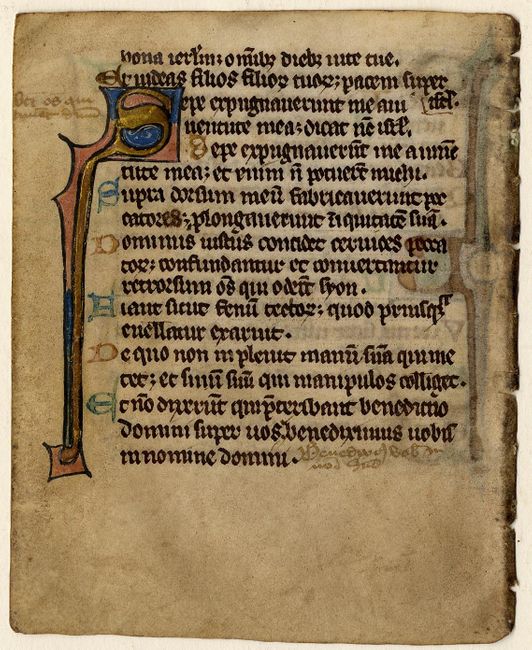 bona ierlm; omib; dieb; uite tue.
Et uideas filios filior tuor; pacem super
Sepe expugnauerunt me a iu isrl.
uentute mea; dicat nc isrl.
Sepe expugnauerunt me a iuuen
tute mea; et enim n potuerut michi.
Supra dorsum meu fabricauerunt pec
catores; plongauerunt iniquitate sua.
Dominus iustus concidet ceruices pecca
tor; confundantur et conuertantur
retrorsum os qui oderut syon.
Fiant sicut fenu tector; quod priusq
euellatur exaruit.
De quo non inpleuit manu sua qui me
tet; et sinu suu qui manipulos colliget.
Et no dixerut qui pteribant benedictio
domini super uos; benediximus uobis
in nomine domini.